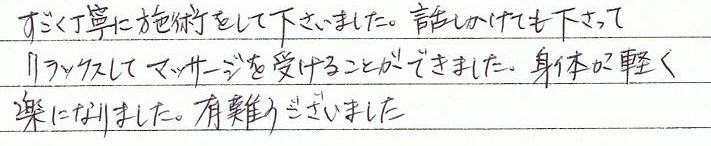 すごく丁寧に施術をして下さいました。話しかけても下さって
リラックスしてマッサージを受けることができました。身体が軽く
楽になりました。有難うございました